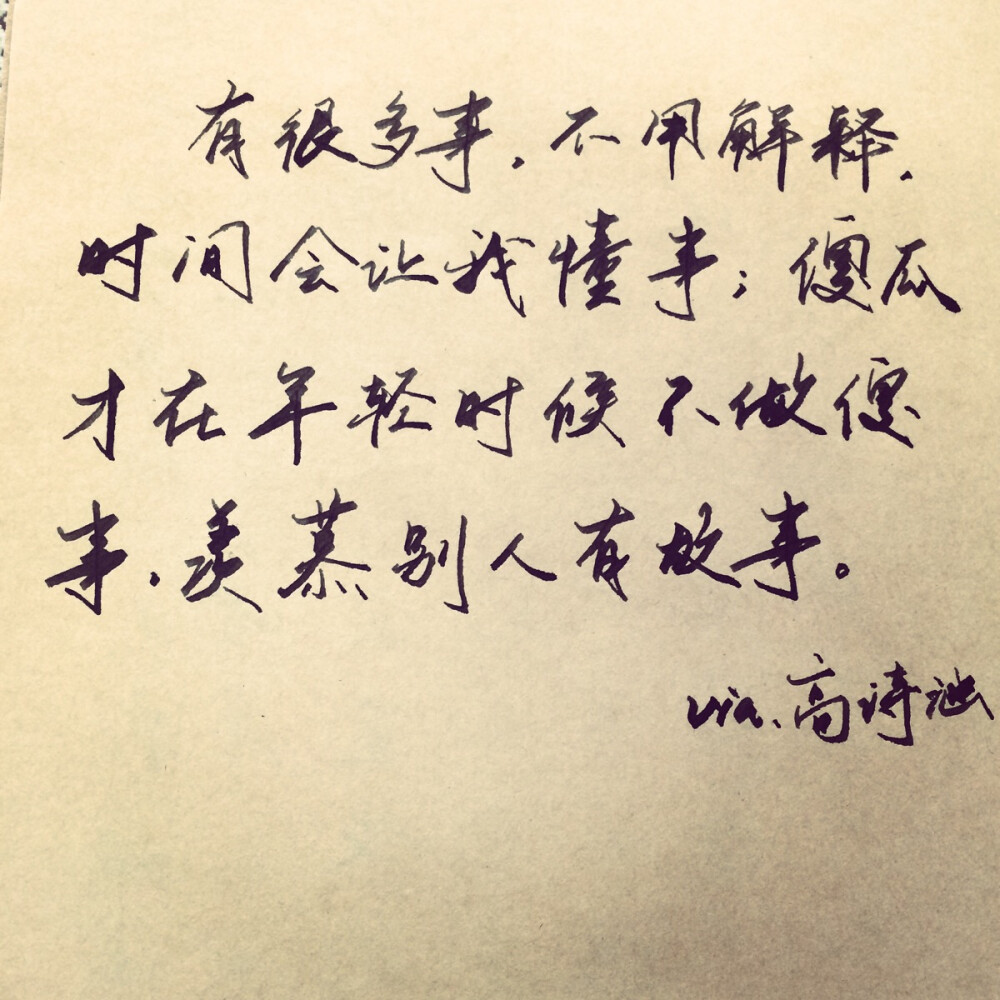 有很多事，不用解释，
时间会让我懂事；傻瓜
才在年轻时候不做傻
事，羡慕别人有故事。
via、高诗涵